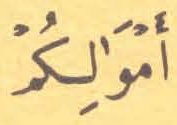 أَمْوَالِكُمْ